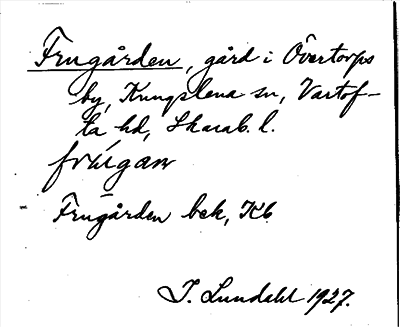 Frugården, gård i Övertorps
by, Kungslena sn, Vartof-
ta hd, Skarab. l.
frúigaɷ
Frūgården bek, Kb
I. Lundahl 1927.